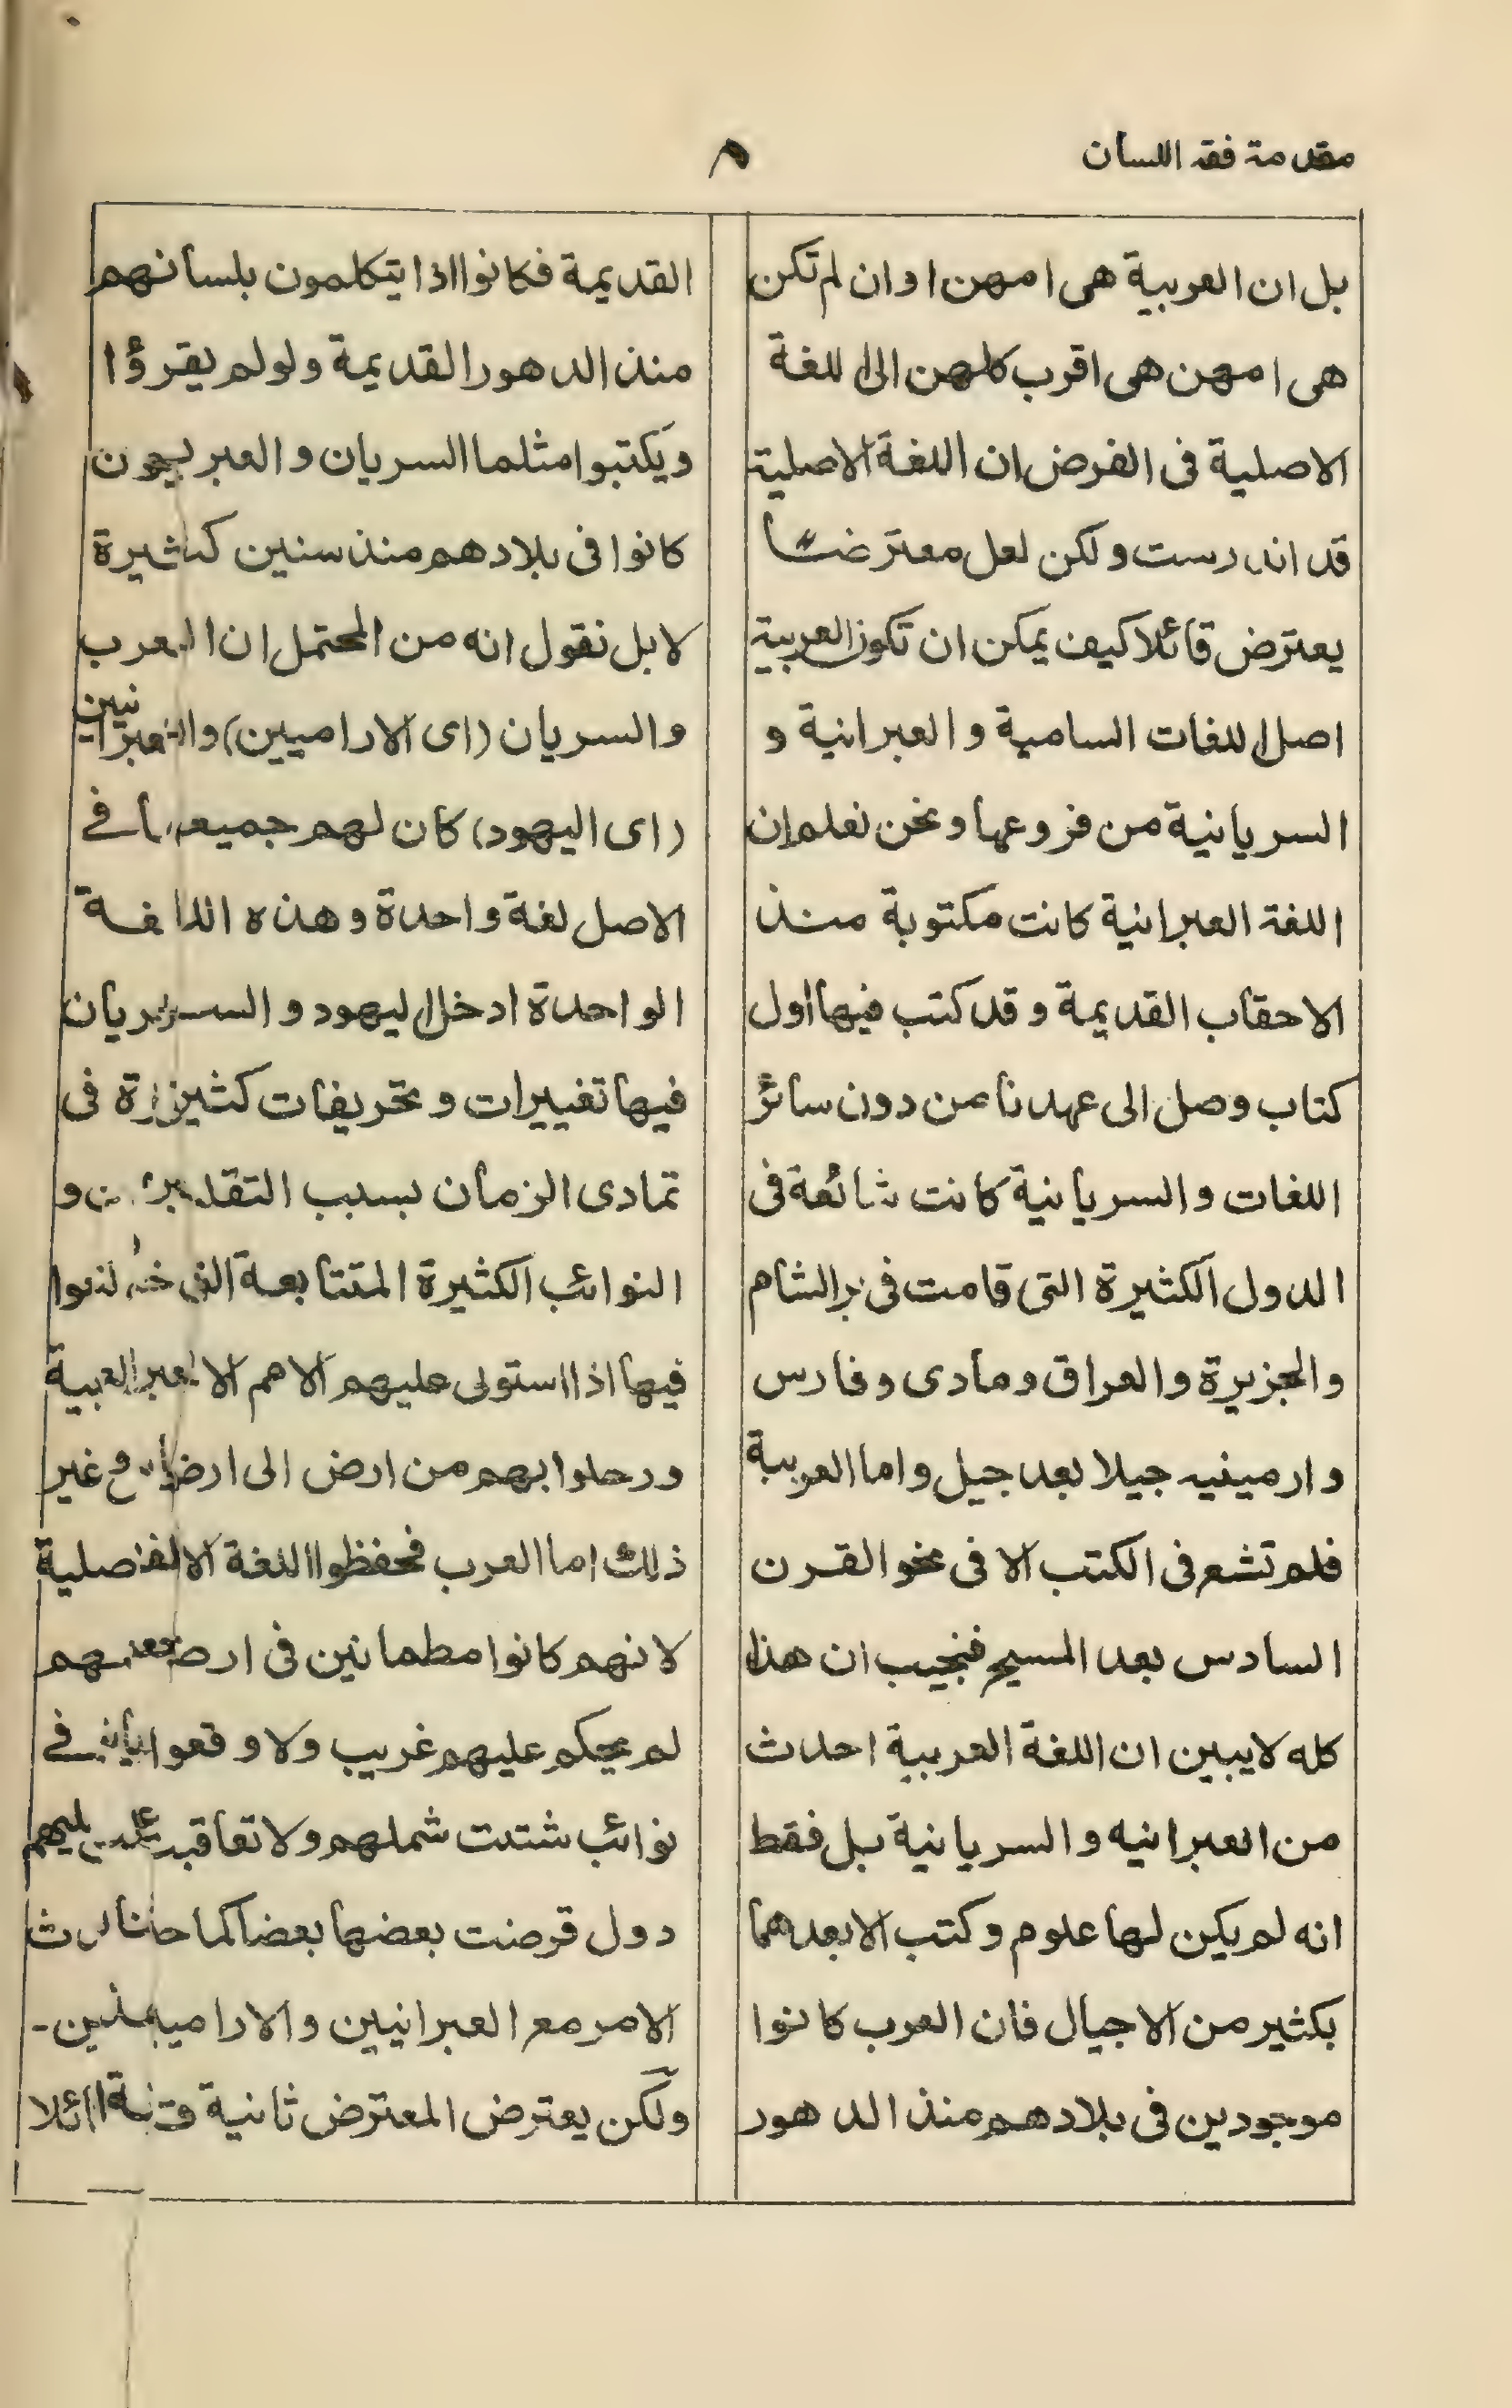 مقدمة فقه اللسان
٨
بل ان العربية هى امهن او ان لم تكن
هى امهن هى اقرب كلهن الى اللغة
الاصلية فى الفرض ان اللغة الاصلية
قد اندرست ولكن لعل معترضا
يعترض قائلا كيف يمكن ان تكون العربية
اصل اللغات السامية و العبرانية و
السريانية من فروعها ونحن نعلم ان
اللغة العبرانية كانت مكتوبة منذ
الاحقاب القديمة و قد كتب فيها اول
كتاب وصل الى عهدنا من دون سائر
اللغات و السريانية كانت شائعة فى
الدول الكثيرة التى قامت فى بر الشام
والجزيرة والعراق ومادى وفارس
وارمينيه جيلا بعد جيل واما العربية
فلم تشع فى الكتب الا فى نحو القرن
السادس بعد المسيح فنجيب ان هذا
كله لايبين ان اللغة العربية احدث
من العبرانيه و السريانية بل فقط
انه لم يكن لها علوم وكتب الا بعدهما
بكثير من الاجيال فان العرب كانوا
موجودين فى بلادهم منذ الدهور
القديمة فكانوا اذا يتكلمون بلسانهم
منذ الدهور القديمة ولو لم يقرؤا
ويكتبوا مثلما السريان و العبريون
كانوا فى بلادهم منذ سنين كثيرة
لا بل نقول انه من المحتمل ان العرب
والسريان (اى الاراميين) والعبرانيين
(اى اليهود) كان لهم جميعا فے
الاصل لغة واحدة وهذه اللغة
الواحدة ادخل اليهود و السريان
فيها تغييرات و تحريفات كثيرة فى
تمادى الزمان بسبب و
النوائب الكثيرة المتتابعة التى
فيها اذا استولى عليهم الامم
ورحلوا بهم من ارض الى ارض وغير
ذلك اما العرب فحفظوا اللغة الاصلية
لانهم كانوا مطمانين فى ارضهم
لم يحكم عليهم غريب ولا وقعوا فے
نوائب شتتت شملهم ولا تعاقبت عليهم
دول قرضت بعضها بعضا كما حدث
الامر مع العبرانيين والاراميين ـ
ولكن يعترض المعترض ثانية قائلا